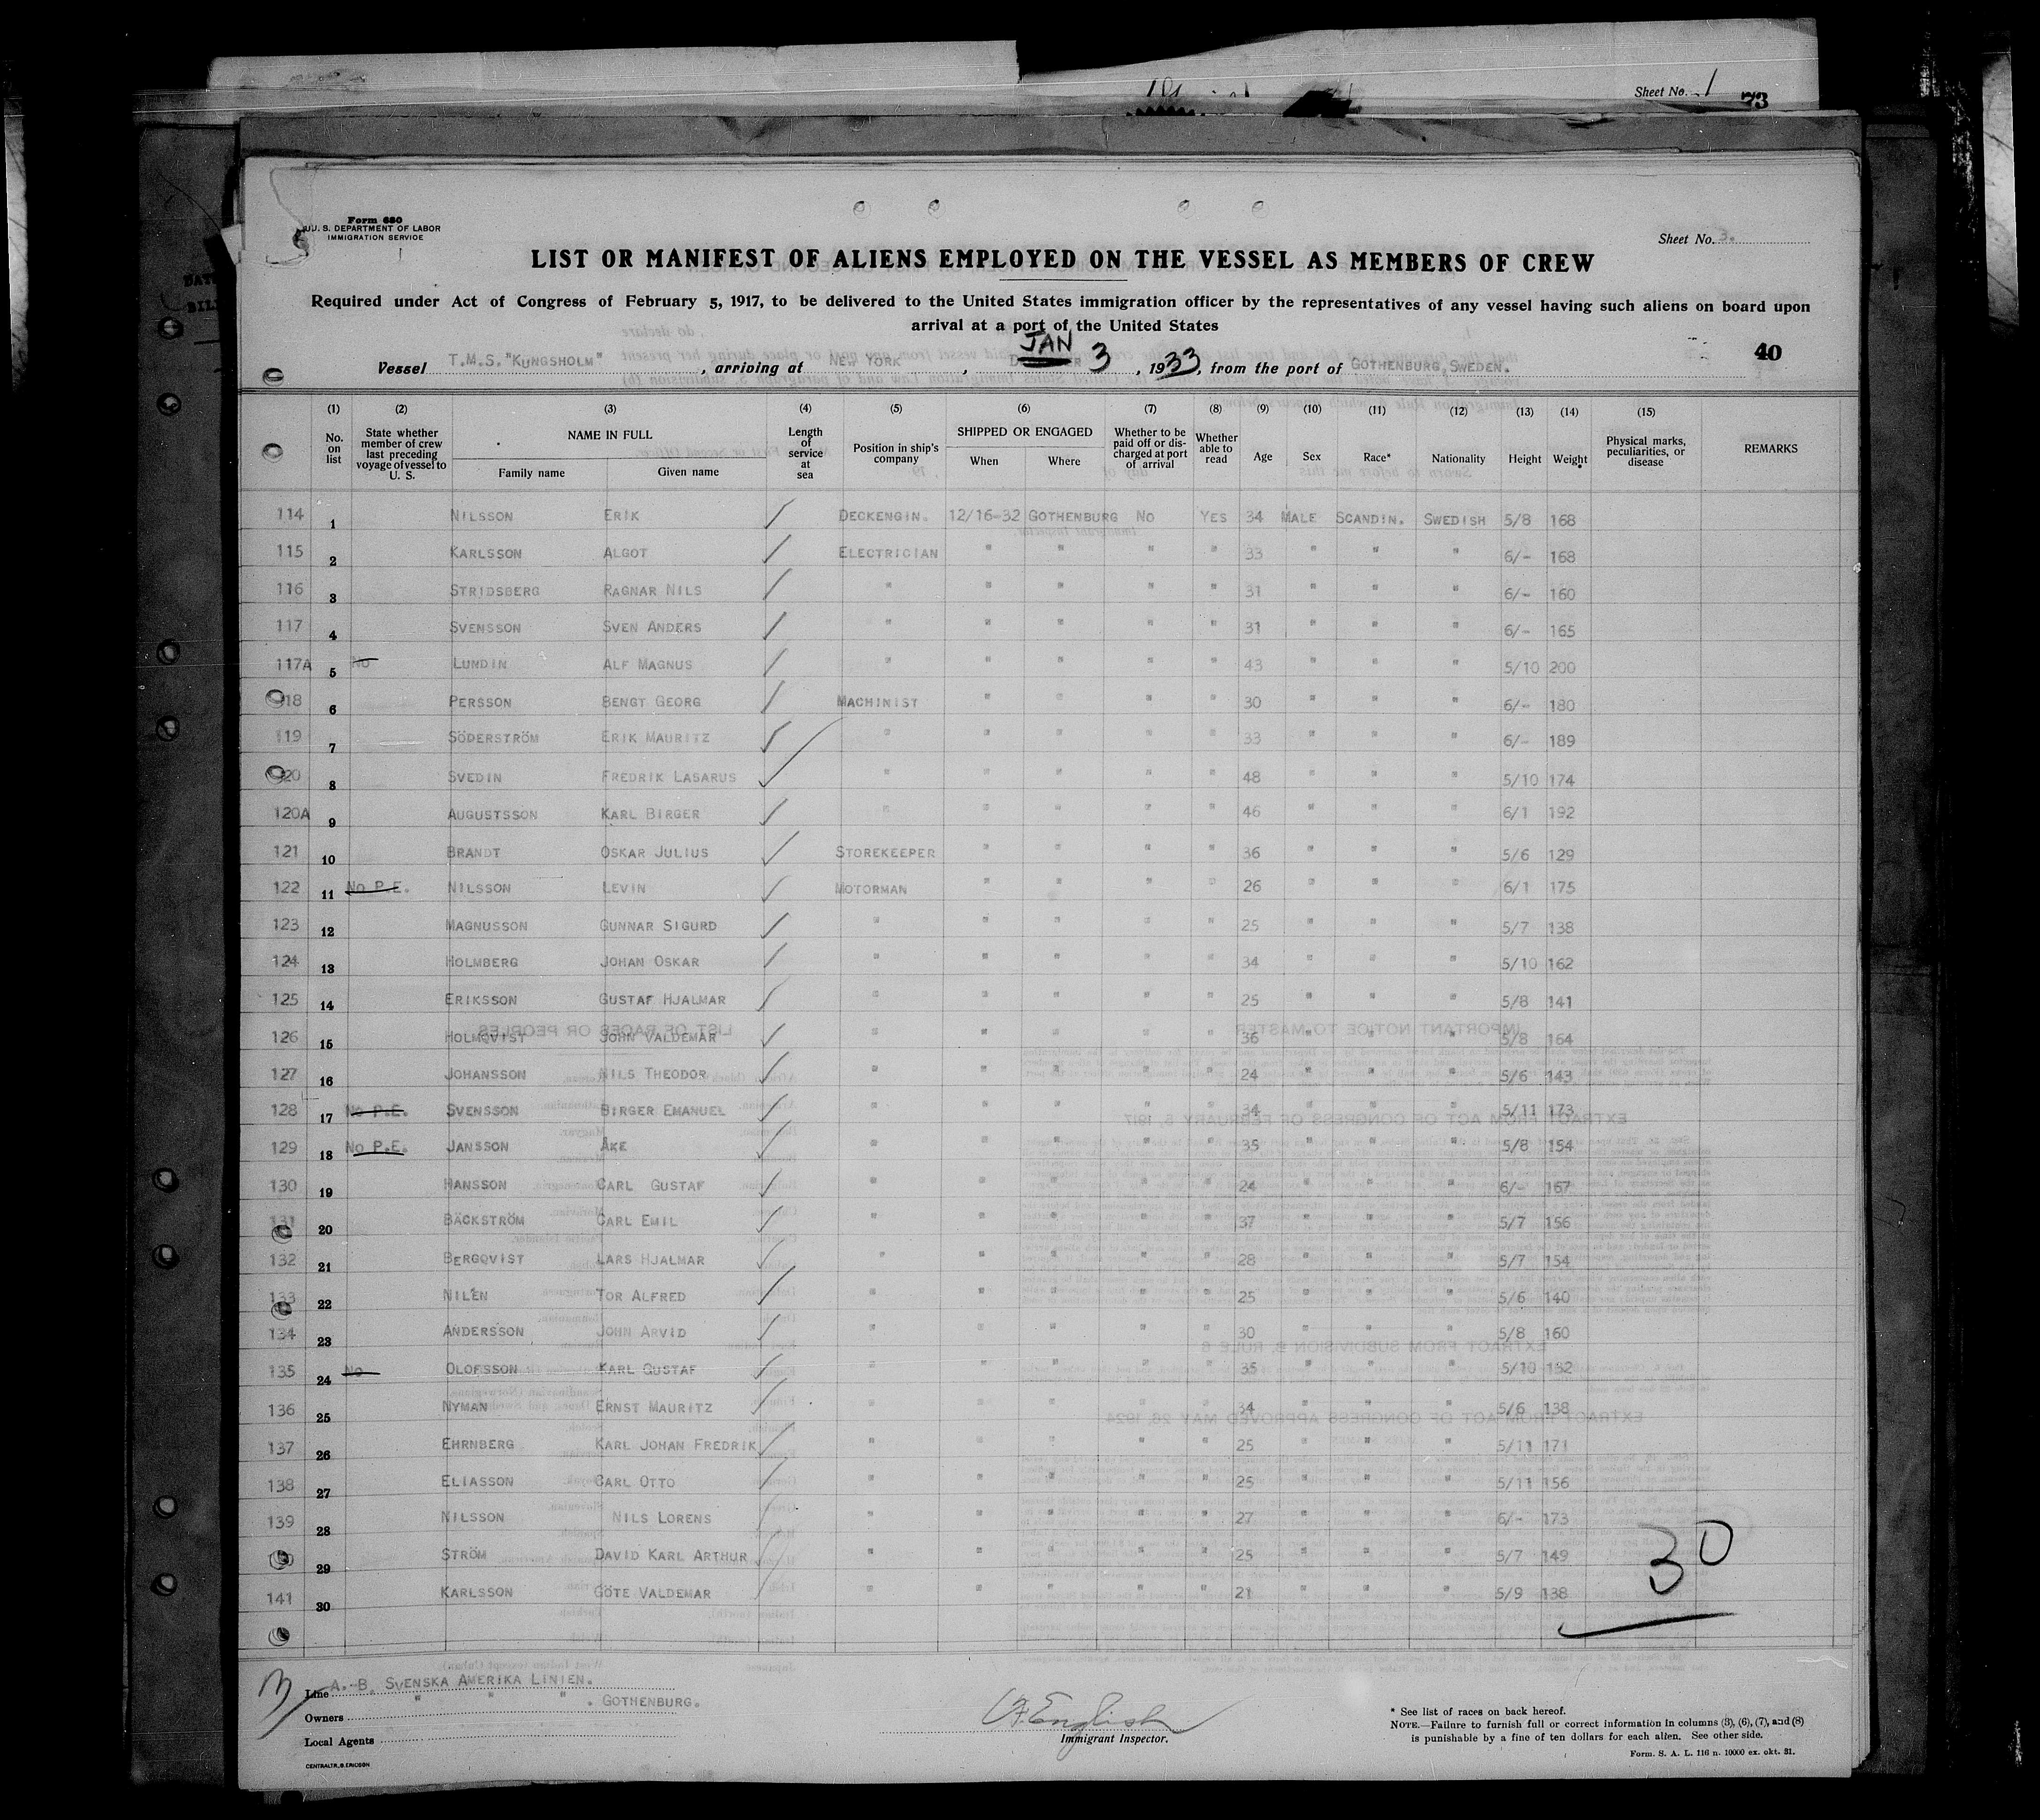 Sheet No. 1
73
Form 680
U. S. DEPARTMENT OF LABOR
IMMIGRATION SERVICE
Sheet No. 3.
LIST OR MANIFEST OF ALIENS EMPLOYED ON THE VESSEL AS MEMBERS OF CREW
Required under Act of Congress of February 5, 1917, to be delivered to the United States immigration officer by the representatives of any vessel having such aliens on board upon
arrival at a port of the United States
40
Vessel T.M.S. "KUNGSHOLM", arriving at NEW YORK, JAN 3, 1933, from the port of GOTHENBURG, SWEDEN.
(1) (2) (3) (4) (5) (6) (7) (8) (9) (10) (11) (12) (13) (14) (15)
No. on list State whether member of crew last preceding voyage of vessel to U. S. NAME IN FULL Family name Given name Length of service at sea Position in ship's company SHIPPED OR ENGAGED When Where Whether to be paid off or discharged at port of arrival Whether able to read Age Sex Race* Nationality Height Weight Physical marks, peculiarities, or disease REMARKS
114 1 NILSSON ERIK ✓ DECKENGIN. 12/16-32 GOTHENBURG NO YES 34 MALE SCANDIN. SWEDISH 5/8 168
115 2 KARLSSON ALGOT ✓ ELECTRICIAN " " " " 33 " " " 6/- 168
116 3 STRIDSBERG RAGNAR NILS ✓ " " " " " 31 " " " 6/- 160
117 4 SVENSSON SVEN ANDERS ✓ " " " " " 31 " " " 6/- 165
117A 5 No LUNDIN ALF MAGNUS ✓ " " " " " 43 " " " 5/10 200
118 6 PERSSON BENGT GEORG ✓ MACHINIST " " " " 30 " " " 6/- 180
119 7 SÖDERSTRÖM ERIK MAURITZ ✓ " " " " " 33 " " " 6/- 189
120 8 SVEDIN FREDRIK LASARUS ✓ " " " " " 48 " " " 5/10 174
120A 9 AUGUSTSSON KARL BIRGER ✓ " " " " " 46 " " " 6/1 192
121 10 BRANDT OSKAR JULIUS ✓ STOREKEEPER " " " " 36 " " " 5/6 129
122 11 No P.E. NILSSON LEVIN ✓ MOTORMAN " " " " 26 " " " 6/1 175
123 12 MAGNUSSON GUNNAR SIGURD ✓ " " " " " 25 " " " 5/7 138
124 13 HOLMBERG JOHAN OSKAR ✓ " " " " " 34 " " " 5/10 162
125 14 ERIKSSON GUSTAF HJALMAR ✓ " " " " " 25 " " " 5/8 141
126 15 HOLMQVIST JOHN VALDEMAR ✓ " " " " " 36 " " " 5/8 164
127 16 JOHANSSON NILS THEODOR ✓ " " " " " 24 " " " 5/6 143
128 17 No P.E. SVENSSON BIRGER EMANUEL ✓ " " " " " 34 " " " 5/11 173
129 18 No P.E. JANSSON ÅKE ✓ " " " " " 35 " " " 5/8 154
130 19 HANSSON CARL GUSTAF ✓ " " " " " 24 " " " 6/- 167
131 20 BÄCKSTRÖM CARL EMIL ✓ " " " " " 37 " " " 5/7 156
132 21 BERGQVIST LARS HJALMAR ✓ " " " " " 28 " " " 5/7 154
133 22 NILÉN TOR ALFRED ✓ " " " " " 25 " " " 5/6 140
134 23 ANDERSSON JOHN ARVID ✓ " " " " " 30 " " " 5/8 160
135 24 No OLOFSSON KARL GUSTAF ✓ " " " " " 35 " " " 5/10 132
136 25 NYMAN ERNST MAURITZ ✓ " " " " " 34 " " " 5/6 138
137 26 EHRNBERG KARL JOHAN FREDRIK ✓ " " " " " 25 " " " 5/11 171
138 27 ELIASSON CARL OTTO ✓ " " " " " 25 " " " 5/11 156
139 28 NILSSON NILS LORENS ✓ " " " " " 27 " " " 6/- 173
29 STRÖM DAVID KARL ARTHUR ✓ " " " " " 25 " " " 5/7 149
141 30 KARLSSON GÖTE VALDEMAR ✓ " " " " " 21 " " " 5/9 138
30
Line A.-B. SVENSKA AMERIKA LINIEN.
Owners " " " . GOTHENBURG.
Local Agents
English
Immigrant Inspector.
* See list of races on back hereof.
NOTE.—Failure to furnish full or correct information in columns (3), (6), (7), and (8)
is punishable by a fine of ten dollars for each alien. See other side.
Form. S. A. L. 116 n. 10000 ex. okt. 31.
CENTRALTR. B. ERICSON